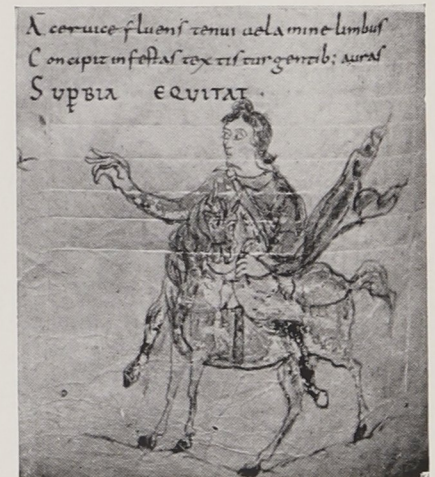 A cervice fluens tenui velamine limbus
Concipit infestas textis turgentib; auras
SUPBIA EQUITAT.